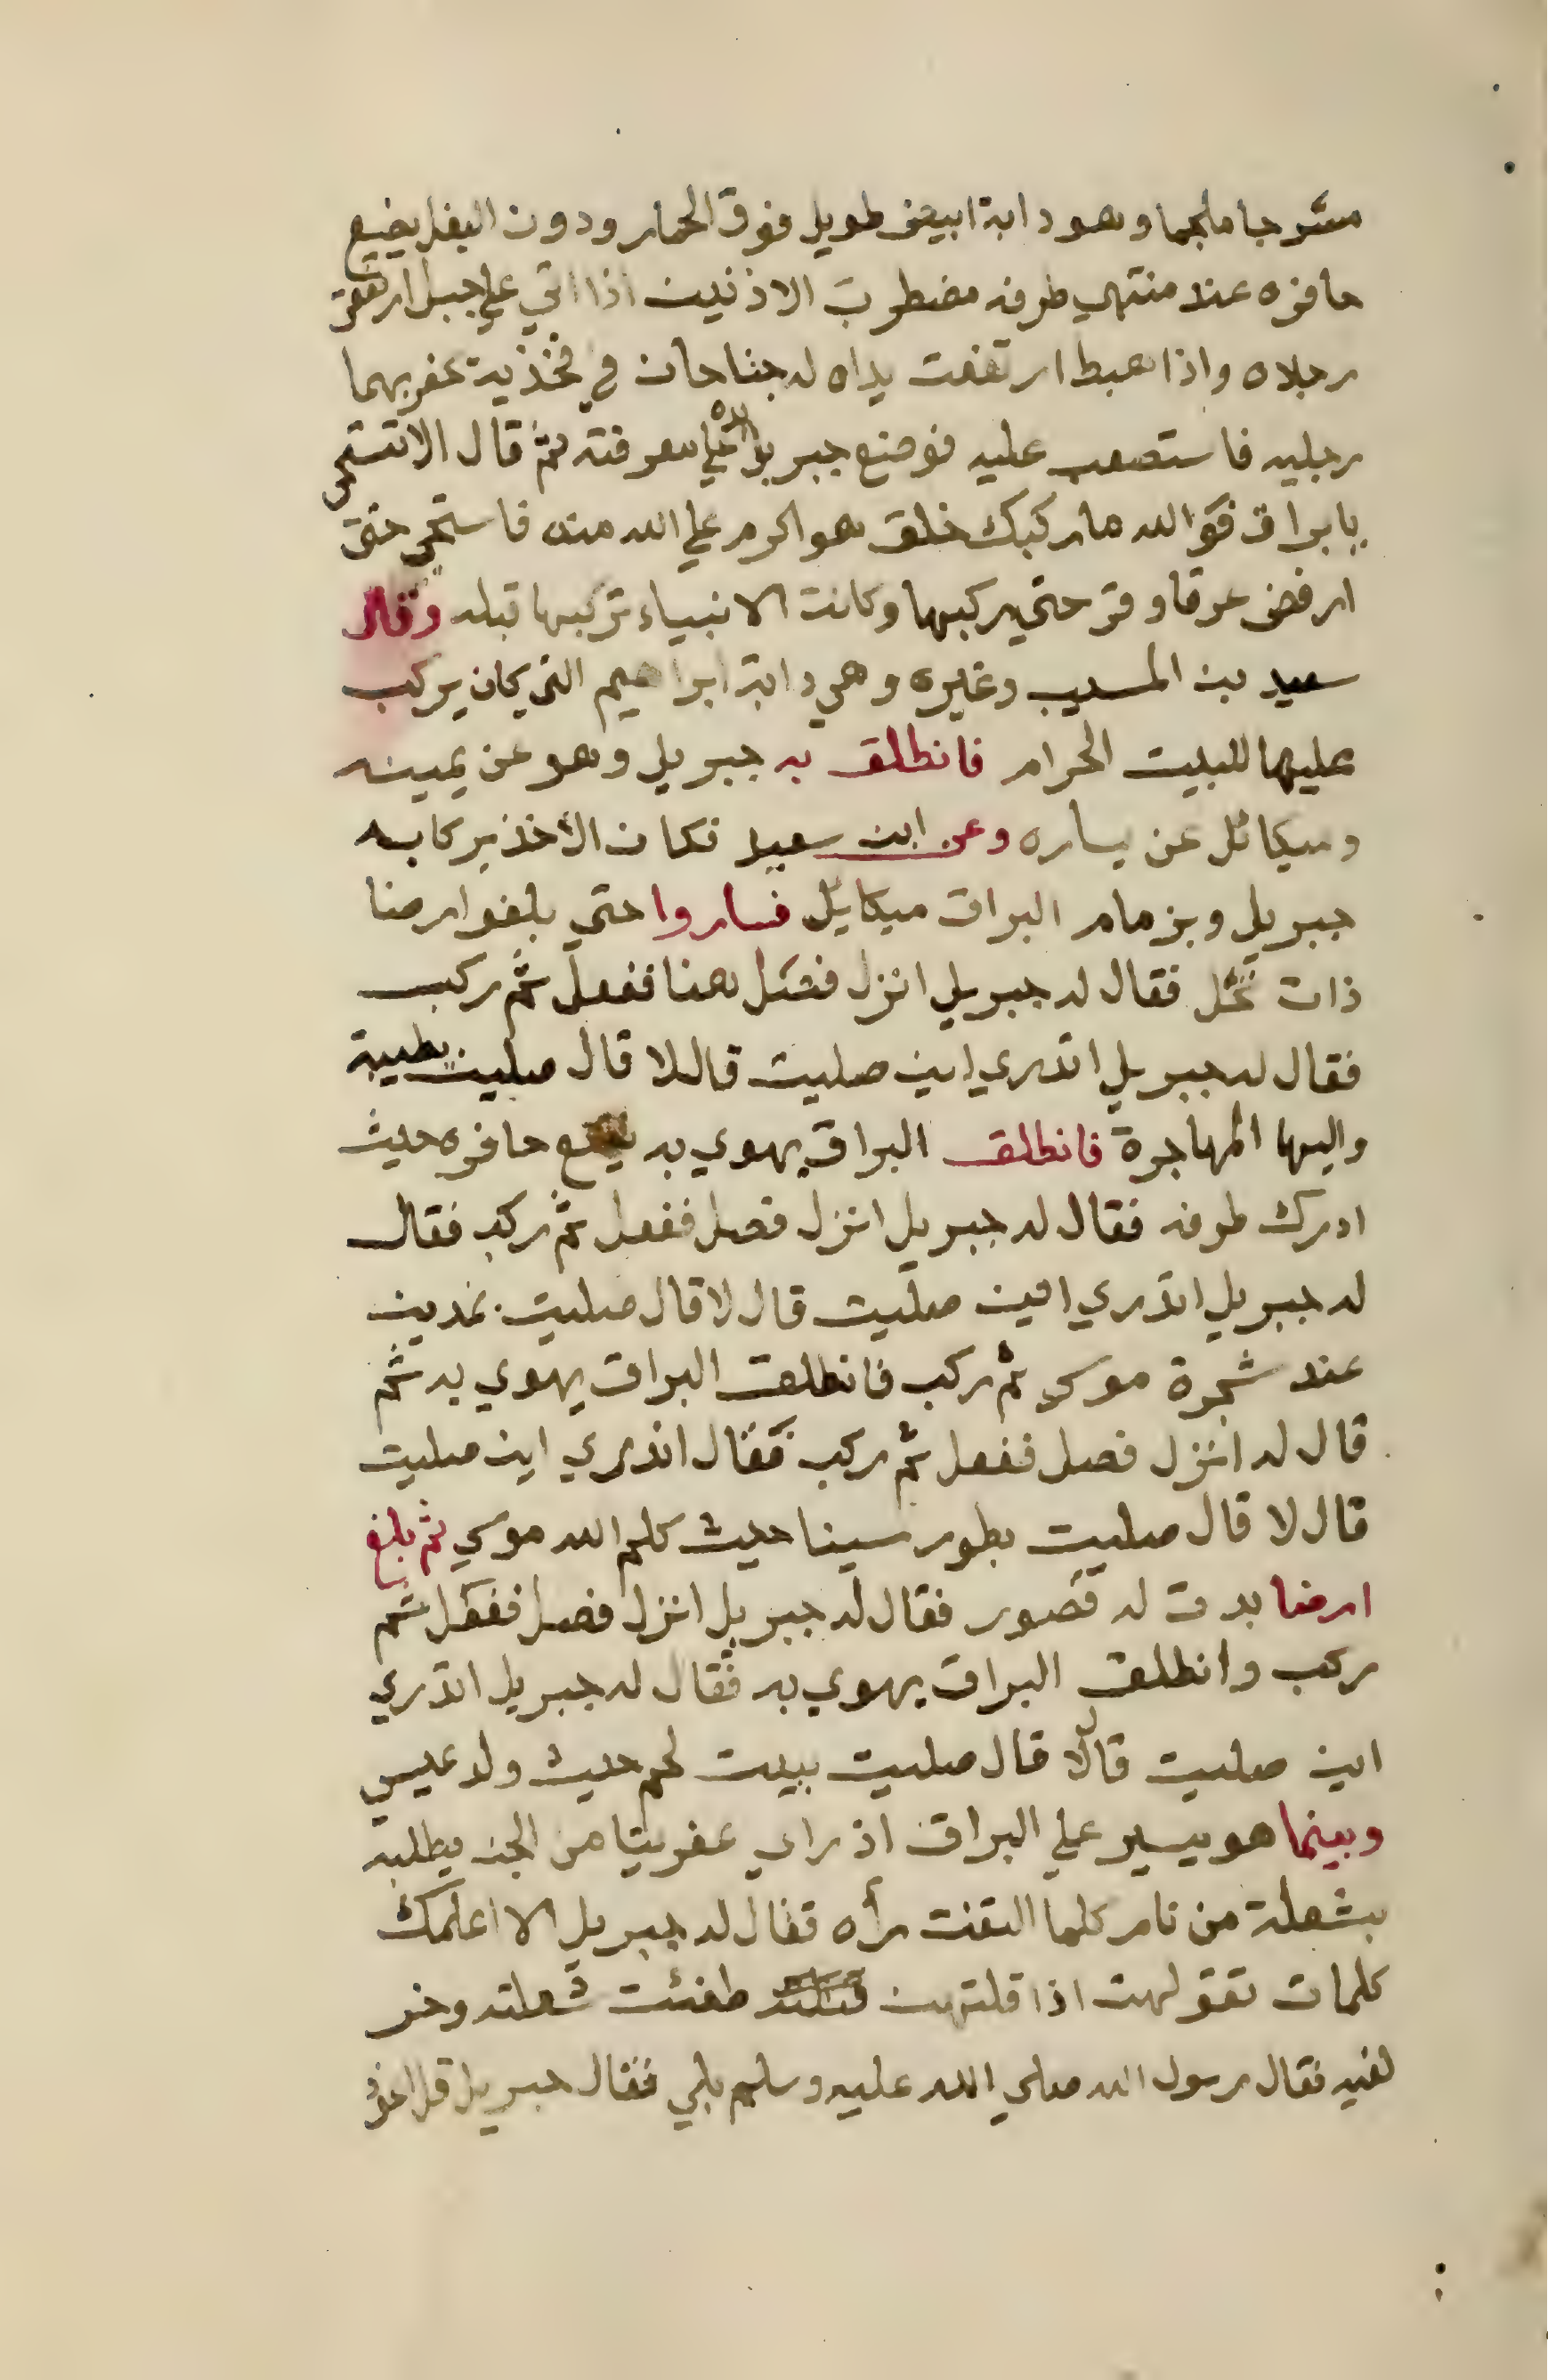 مسرجا ملجما وهو دابة ابيض طويل فوق الحمار ودون البغل يضع
حافره عند منتهي طرفه مضطرب الاذنين اذا اتي علي جبل ارتفعت
رجلاه واذا هبط ارتفعت يداه له جناحان في فخذيه يحفر بهما
رجليه فاستصعب عليه فوضع جبريل يده علي معرفته ثم قال الا تستحي
يا براق فوالله ما ركبك خلق هو اكرم علي الله منه فاستحي حتي
ارفض عرقا وقر حتي ركبها وكانت الانبياء تركبها قبله وقال
سعيد بن المسيب وغيره وهي دابة ابراهيم التي كان يركب
عليها للبيت الحرام فانطلق به جبريل وهو عن يمينه
وميكائل عن يساره وعن ابن سعيد فكان الأخذ بركابه
جبريل وبزمام البراق ميكائل فساروا حتي بلغوا ارضا
ذات نخل فقال له جبريل انزل فصل هنا ففعل ثم ركب
فقال له جبريل اتدري اين صليت قال لا قال صليت بطيبة
واليها المهاجرة فانطلق البراق يهوي به يضع حافره حيث
ادرك طرفه فقال له جبريل انزل فصل ففعل ثم ركب فقال
له جبريل اتدري اين صليت قال لا قال صليت بمدين
عند شجرة موسي ثم ركب فانطلق البراق يهوي به ثم
قال له انزل فصل ففعل ثم ركب فقال اتدري اين صليت
قال لا قال صليت بطور سينا حيث كلم الله موسي ثم بلغ
ارضا بدت له قصور فقال له جبريل انزل فصل ففعل ثم
ركب وانطلق البراق يهوي به فقال له جبريل اتدري
اين صليت قال لا قال صليت ببيت لحم حيث ولد عيسي
وبينما هو يسير علي البراق اذ راي عفريتا من الجن يطلبه
بشعلة من نار كلما التفت رأه فقال له جبريل الا اعلمك
كلمات تقولهن اذا قلتهن طفئت شعلته وخر
لفيه فقال رسول الله صلي الله عليه وسلم بلي فقال جبريل قل اعوذ